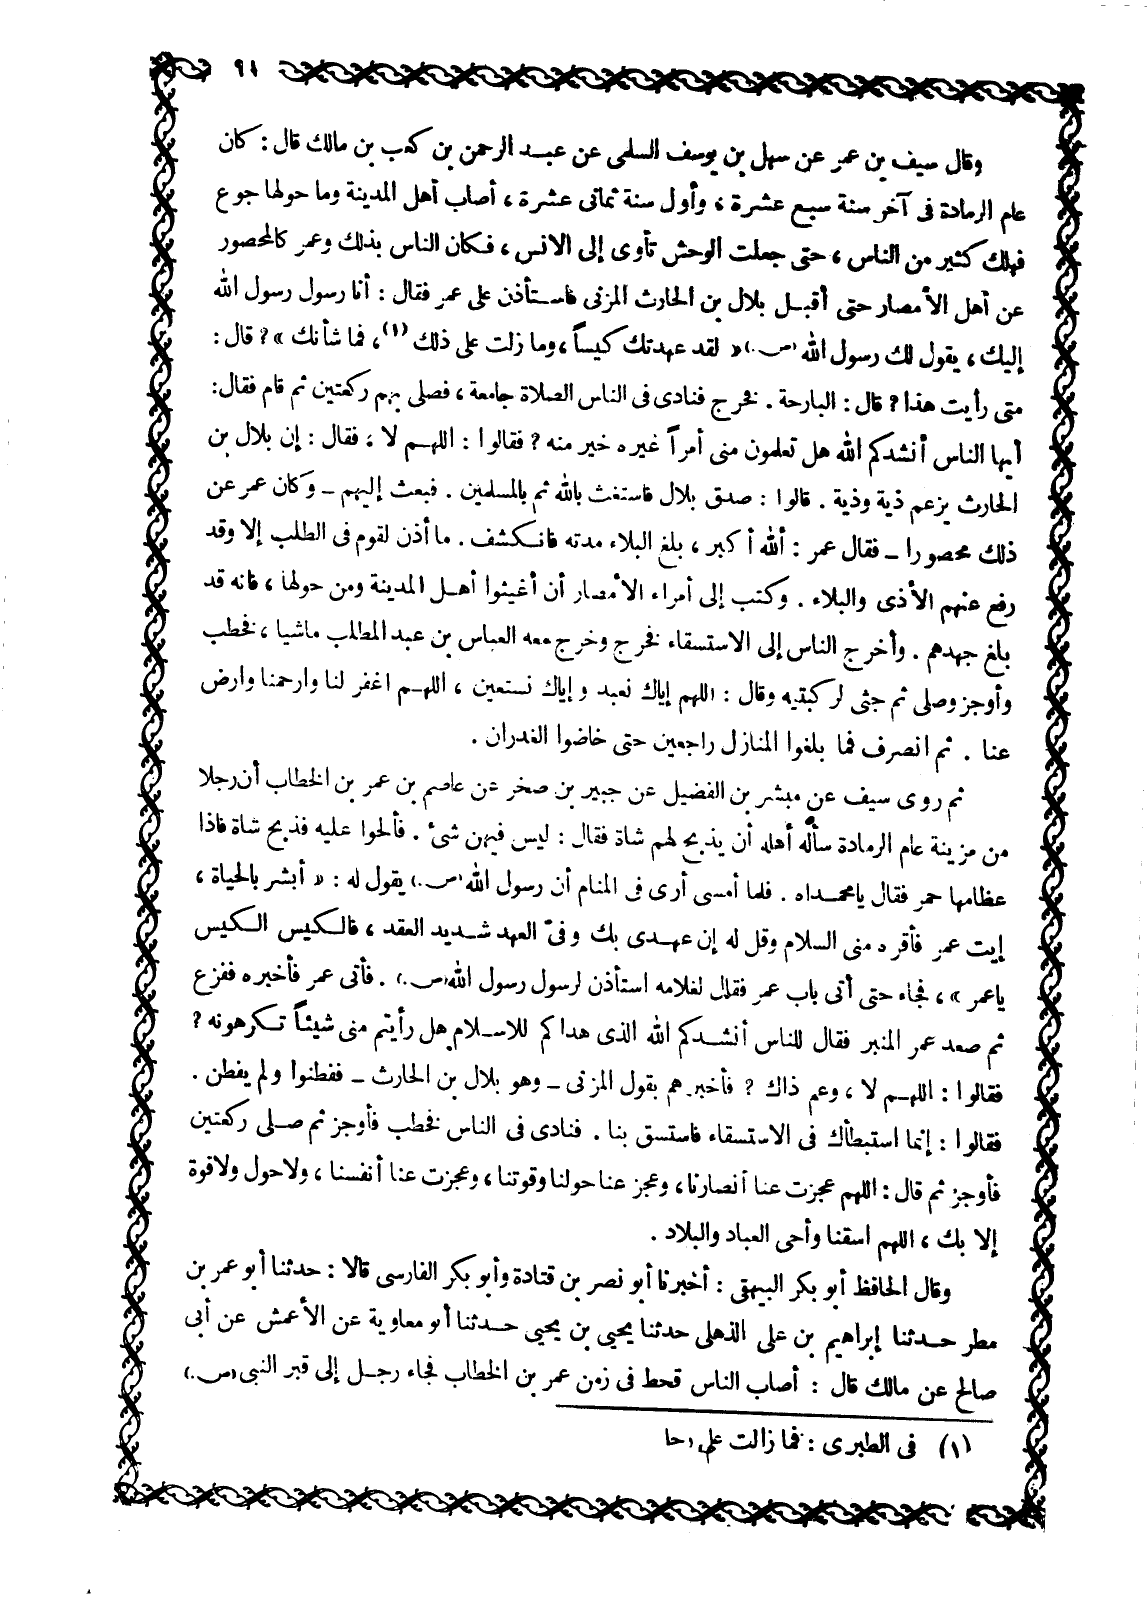 ٩١
وقال سيف بن عمر عن سهل بن يوسف السلمى عن عبد الرحمن بن كعب بن مالك قال : كان
عام الرمادة فى آخر سنة سبع عشرة ، وأول سنة ثمانى عشرة ، أصاب أهل المدينة وما حولها جوع
فهلك كثير من الناس ، حتى جعلت الوحش تأوى إلى الانس ، فكان الناس بذلك وعمر كالمحصور
عن أهل الأمصار حتى أقبل بلال بن الحارث المزنى فاستأذن على عمر فقال : أنا رسول رسول الله
إليك ، يقول لك رسول الله (ص.) « لقد عهدتك كيساً ، وما زلت على ذلك (١) ، فما شأنك » ؟ قال :
متى رأيت هذا ؟ قال : البارحة . فخرج فنادى فى الناس الصلاة جامعة ، فصلى بهم ركعتين ثم قام فقال :
أيها الناس أنشدكم الله هل تعلمون منى أمراً غيره خير منه ؟ فقالوا : اللهم لا ، فقال : إن بلال بن
الحارث يزعم ذية وذية . قالوا : صدق بلال فاستغث بالله ثم بالمسلمين . فبعث إليهم ــ وكان عمر عن
ذلك محصورا ــ فقال عمر : الله أكبر ، بلغ البلاء مدته فانكشف . ما أذن لقوم فى الطلب إلا وقد
رفع عنهم الأذى والبلاء . وكتب إلى أمراء الأمصار أن أغيثوا أهل المدينة ومن حولها ، فانه قد
بلغ جهدهم . وأخرج الناس إلى الاستسقاء فخرج وخرج معه العباس بن عبد المطلب ماشيا ، فخطب
وأوجز وصلى ثم جثى لركبتيه وقال : اللهم إياك نعبد وإياك نستعين ، اللهم اغفر لنا وارحمنا وارض
عنا . ثم انصرف فما بلغوا المنازل راجعين حتى خاضوا الغدران .
ثم روى سيف عن مبشر بن الفضيل عن جبير بن صخر عن عاصم بن عمر بن الخطاب أن رجلا
من مزينة عام الرمادة سأله أهله أن يذبح لهم شاة فقال : ليس فيهن شئ . فألحوا عليه فذبح شاة فاذا
عظامها حمر فقال يامحمداه . فلما أمسى أرى فى المنام أن رسول الله (ص.) يقول له : « أبشر بالحياة ،
إيت عمر فأقره منى السلام وقل له إن عهدى بك وفىّ العهد شديد العقد ، فالكيس الكيس
ياعمر » ، فجاء حتى أتى باب عمر فقال لغلامه استأذن لرسول رسول الله (ص.) . فأتى عمر فأخبره ففزع
ثم صعد عمر المنبر فقال للناس أنشدكم الله الذى هداكم للاسلام هل رأيتم منى شيئاً تكرهونه ؟
فقالوا : اللهم لا ، وعم ذاك ؟ فأخبرهم بقول المزنى ــ وهو بلال بن الحارث ــ ففطنوا ولم يفطن .
فقالوا : إنما استبطأك فى الاستسقاء فاستسق بنا . فنادى فى الناس فخطب فأوجز ثم صلى ركعتين
فأوجز ثم قال : اللهم عجزت عنا أنصارنا ، وعجز عنا حولنا وقوتنا ، وعجزت عنا أنفسنا ، ولا حول ولا قوة
إلا بك ، اللهم اسقنا وأحى العباد والبلاد .
وقال الحافظ أبو بكر البيهقى : أخبرنا أبو نصر بن قتادة وأبو بكر الفارسى قالا : حدثنا أبو عمر بن
مطر حدثنا إبراهيم بن على الذهلى حدثنا يحيى بن يحيى حدثنا أبو معاوية عن الأعمش عن أبى
صالح عن مالك قال : أصاب الناس قحط فى زمن عمر بن الخطاب فجاء رجل إلى قبر النبى (ص.)
(١) فى الطبرى : فما زالت على